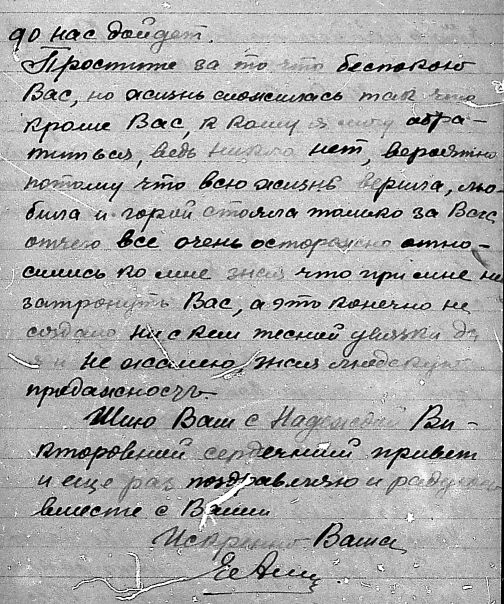 до нас дойдет.
Простите за то что беспокою
Вас, но жизнь сложилась так что
кроме Вас, к кому я могу обра-
титься, ведь никого нет, вероятно
потому что всю жизнь верила, лю-
била и горой стояла только за Вас
отчего все очень осторожно отно-
сились ко мне зная что при мне не
затронуть Вас, а это конечно не
создало ни с кем тесной увязки да
я и не жалею, зная людскую
продажность.
Шлю Вам с Надеждой Ви-
кторовной сердечный привет
и еще раз поздравляю и радуюсь
вместе с Вами
Искренно Ваша